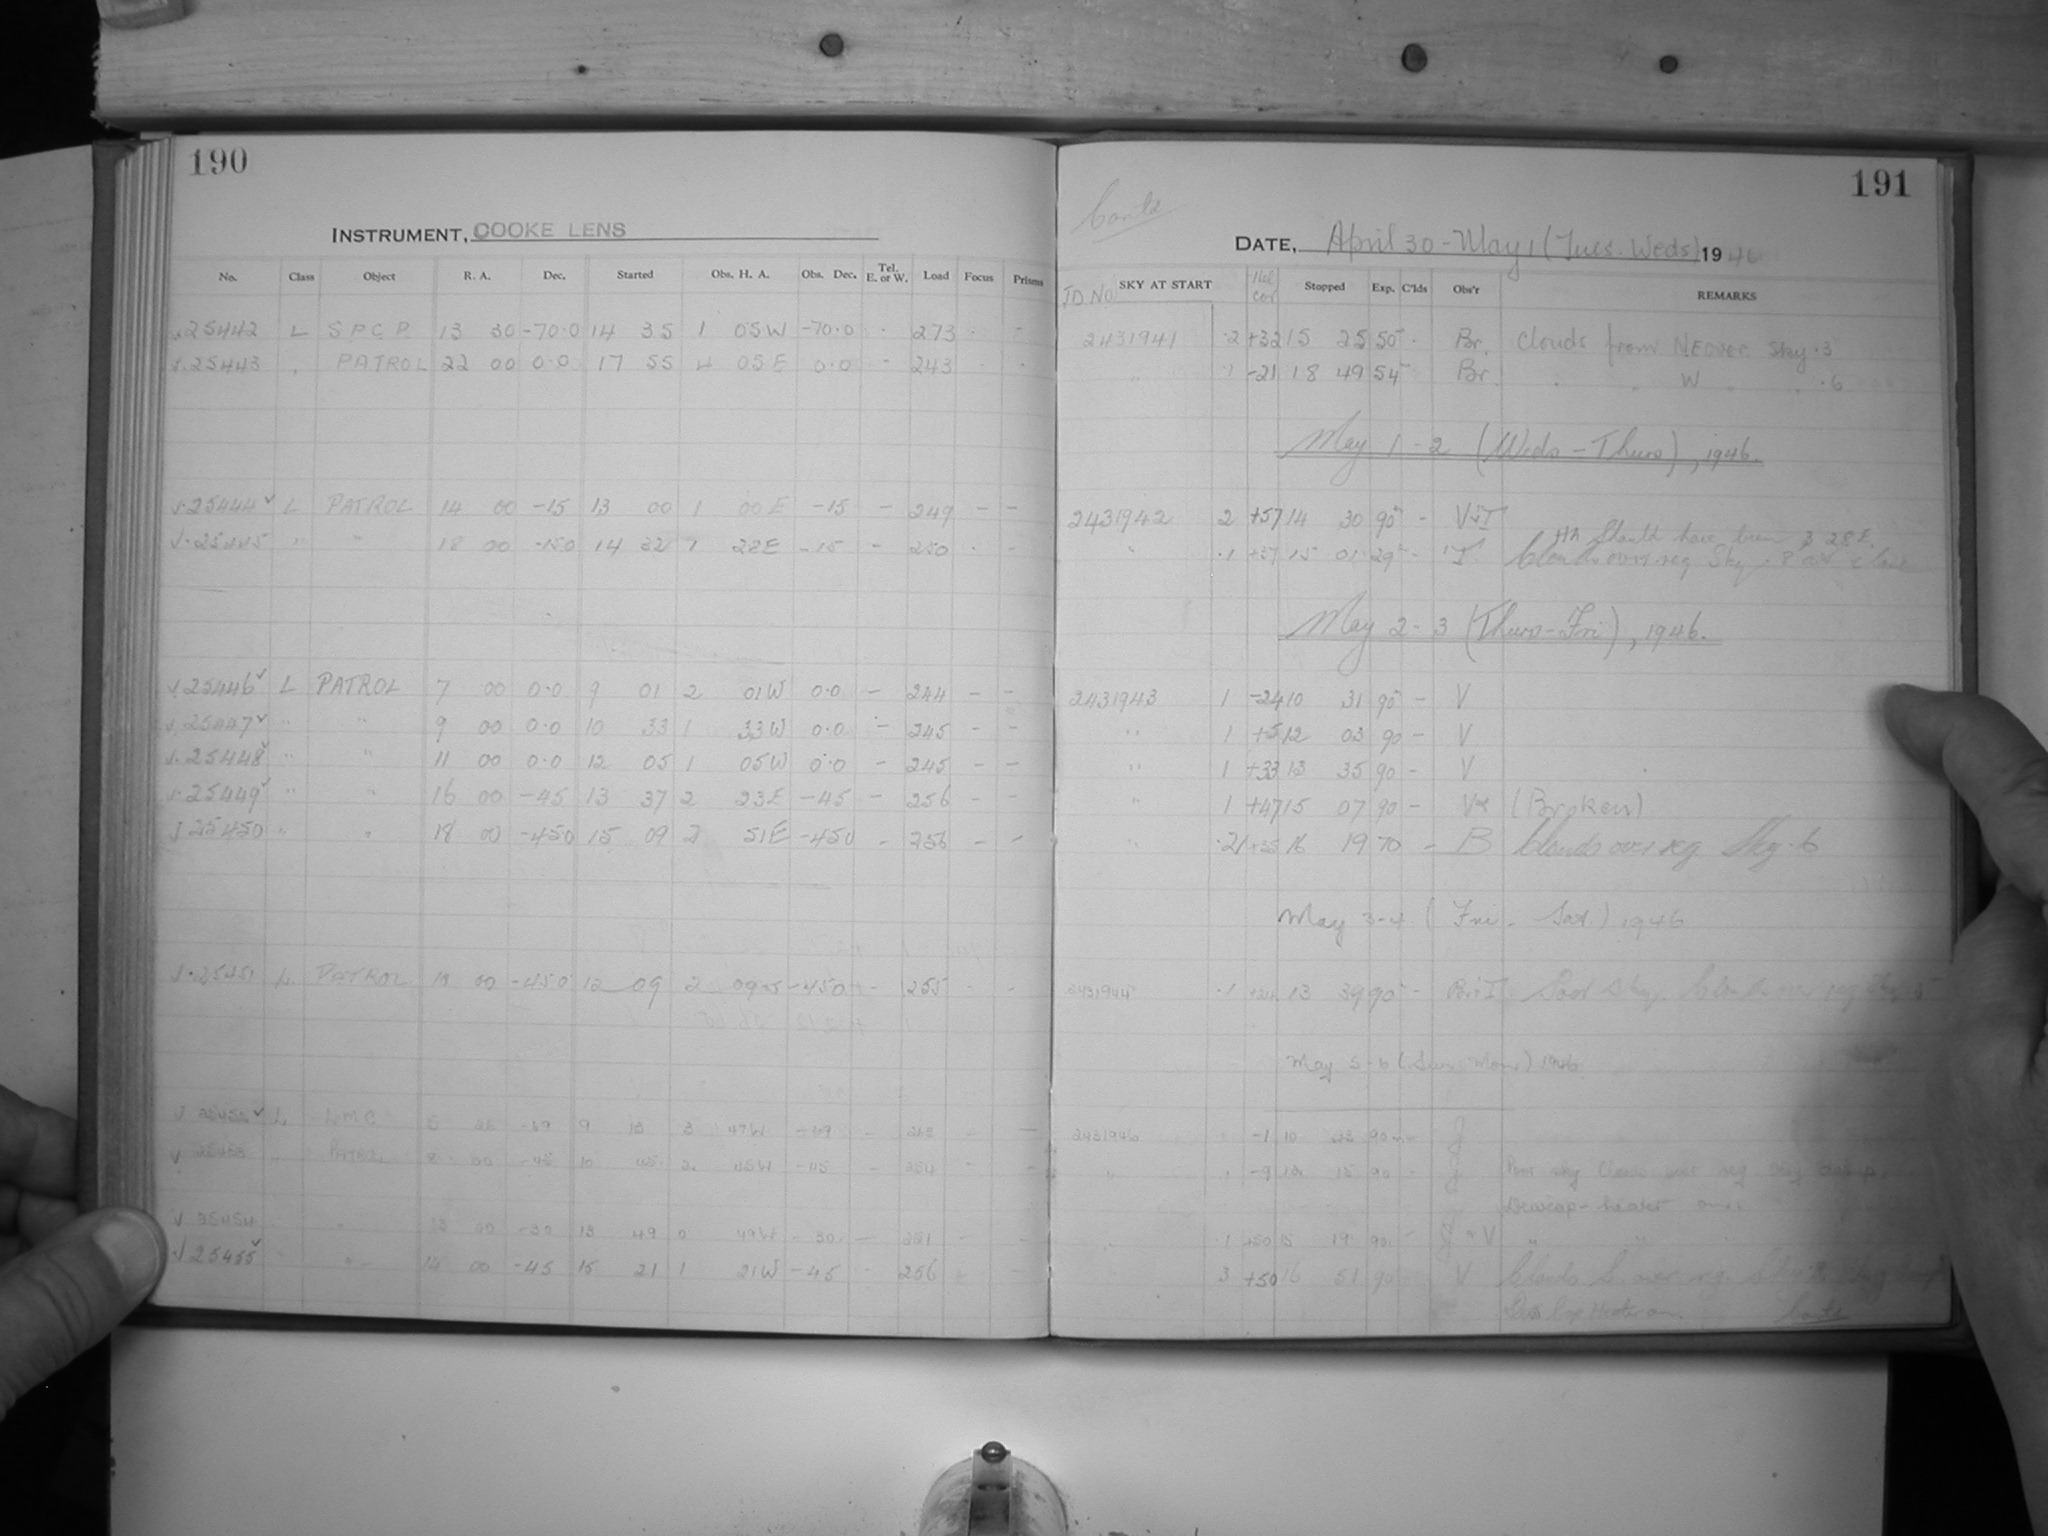 190
INSTRUMENT, COOKE LENS
No. Class Object R. A. Dec. Started Obs. H. A. Obs. Dec. Tel. E. or W. Load Focus Prisms
√.25442 L S.P.C.P. 13 30 -70.0 14 35 1 05W -70.0 273
√.25443 " PATROL 22 00 0.0 17 55 4 05E 0.0 - 243
√.25444 √ L PATROL 14 00 -15 13 00 1 00E -15 - 249 - -
√.25445 " " 18 00 -150 14 32 28E -15 - 250
√.25446 √ L PATROL 7 00 0.0 9 01 2 01W 0.0 - 244 - -
√.25447 √ " " 9 00 0.0 10 33 1 33W 0.0 - 245 - -
√.25448 √ " " 11 00 0.0 12 05 1 05W 0.0 - 245 - -
√.25449 √ " " 16 00 -45 13 37 2 23E -45 - 256 - -
√ 25450 " " 18 00 -450 15 09 2 51E -450 - 256 - -
√.25451 L PATROL 00 -450 12 09 2 09 -450 - 255 - -
√ 25452 √ L L.M.C. 5 -69 9 13 3 47W -69 -
√ 25453 " PATROL 8 00 -45 10 45 2 45W -45 - 254 - -
√ 25454 " 13 00 -30 13 49 0 49W -30 - 251 - -
√ 25455 √ " 14 00 -45 15 21 1 21W -45 - 256 -
191
Contd
DATE, April 30 - May 1 (Tues. Weds) 1946
JD No SKY AT START Hel cor Stopped Exp. C'lds Obs'r REMARKS
2431941 .2 +32 15 25 50 - Br. Clouds from NE over Sky .3
" .1 -21 18 49 54 Br. " " W " " .6
May 1 - 2 (Weds - Thurs), 1946.
2431942 2 +57 14 30 90 - V+T
HA Should have been 3 28E.
" .1 +37 15 01 29 - T. Clouds over reg Sky .8
May 2 - 3 (Thurs - Fri), 1946.
2431943 1 -24 10 31 90 - V
" 1 +5 12 03 90 - V
" 1 +33 13 35 90 - V
" 1 +47 15 07 90 - V (Broken)
" .2 +35 16 19 70 - B Clouds over reg. Sky .6
May 3-4 (Fri - Sat.) 1946
2431944 .1 13 39 90 - Poor Sky. Clouds over reg Sky
May 5-6 (Sun Mon) 1946
2431946 -1 10 43 90 - J
" -9 12 15 90 - J Poor sky Clouds over reg. Sky damp.
Dewcap-heater on.
.1 +50 15 19 90 - J + V " "
3 +50 16 51 90 - V Clouds S. over reg.
Dew Cap Heater on. Contd